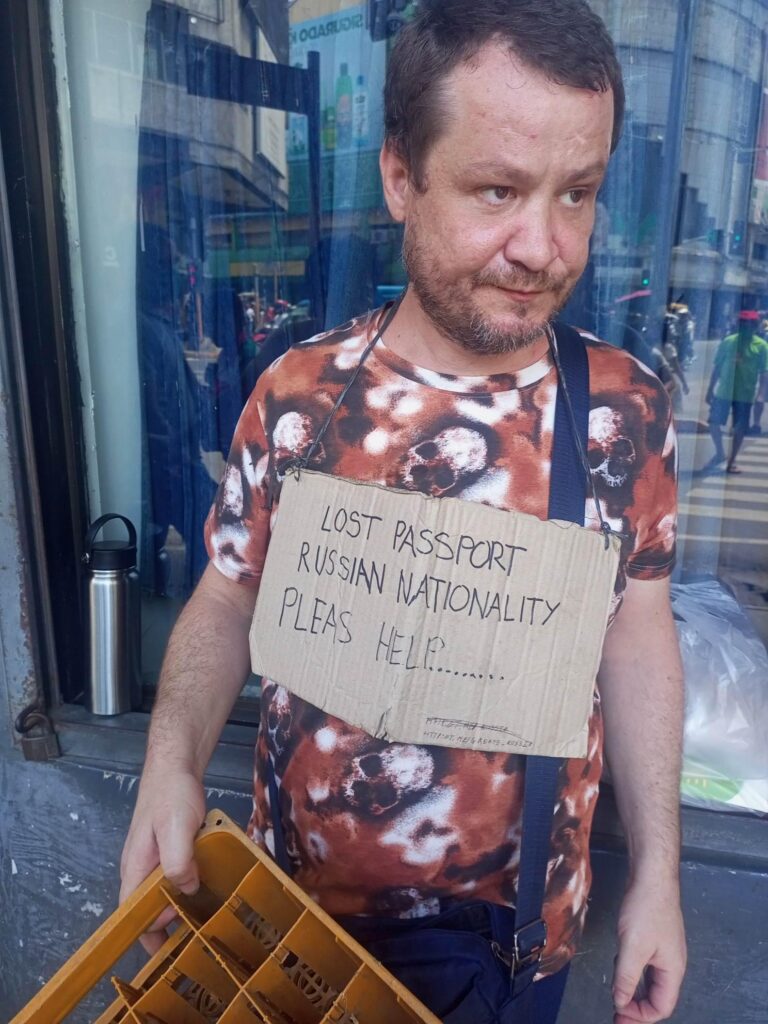 SIGURADO K
LOST PASSPORT
RUSSIAN NATIONALITY
PLEAS HELP.........